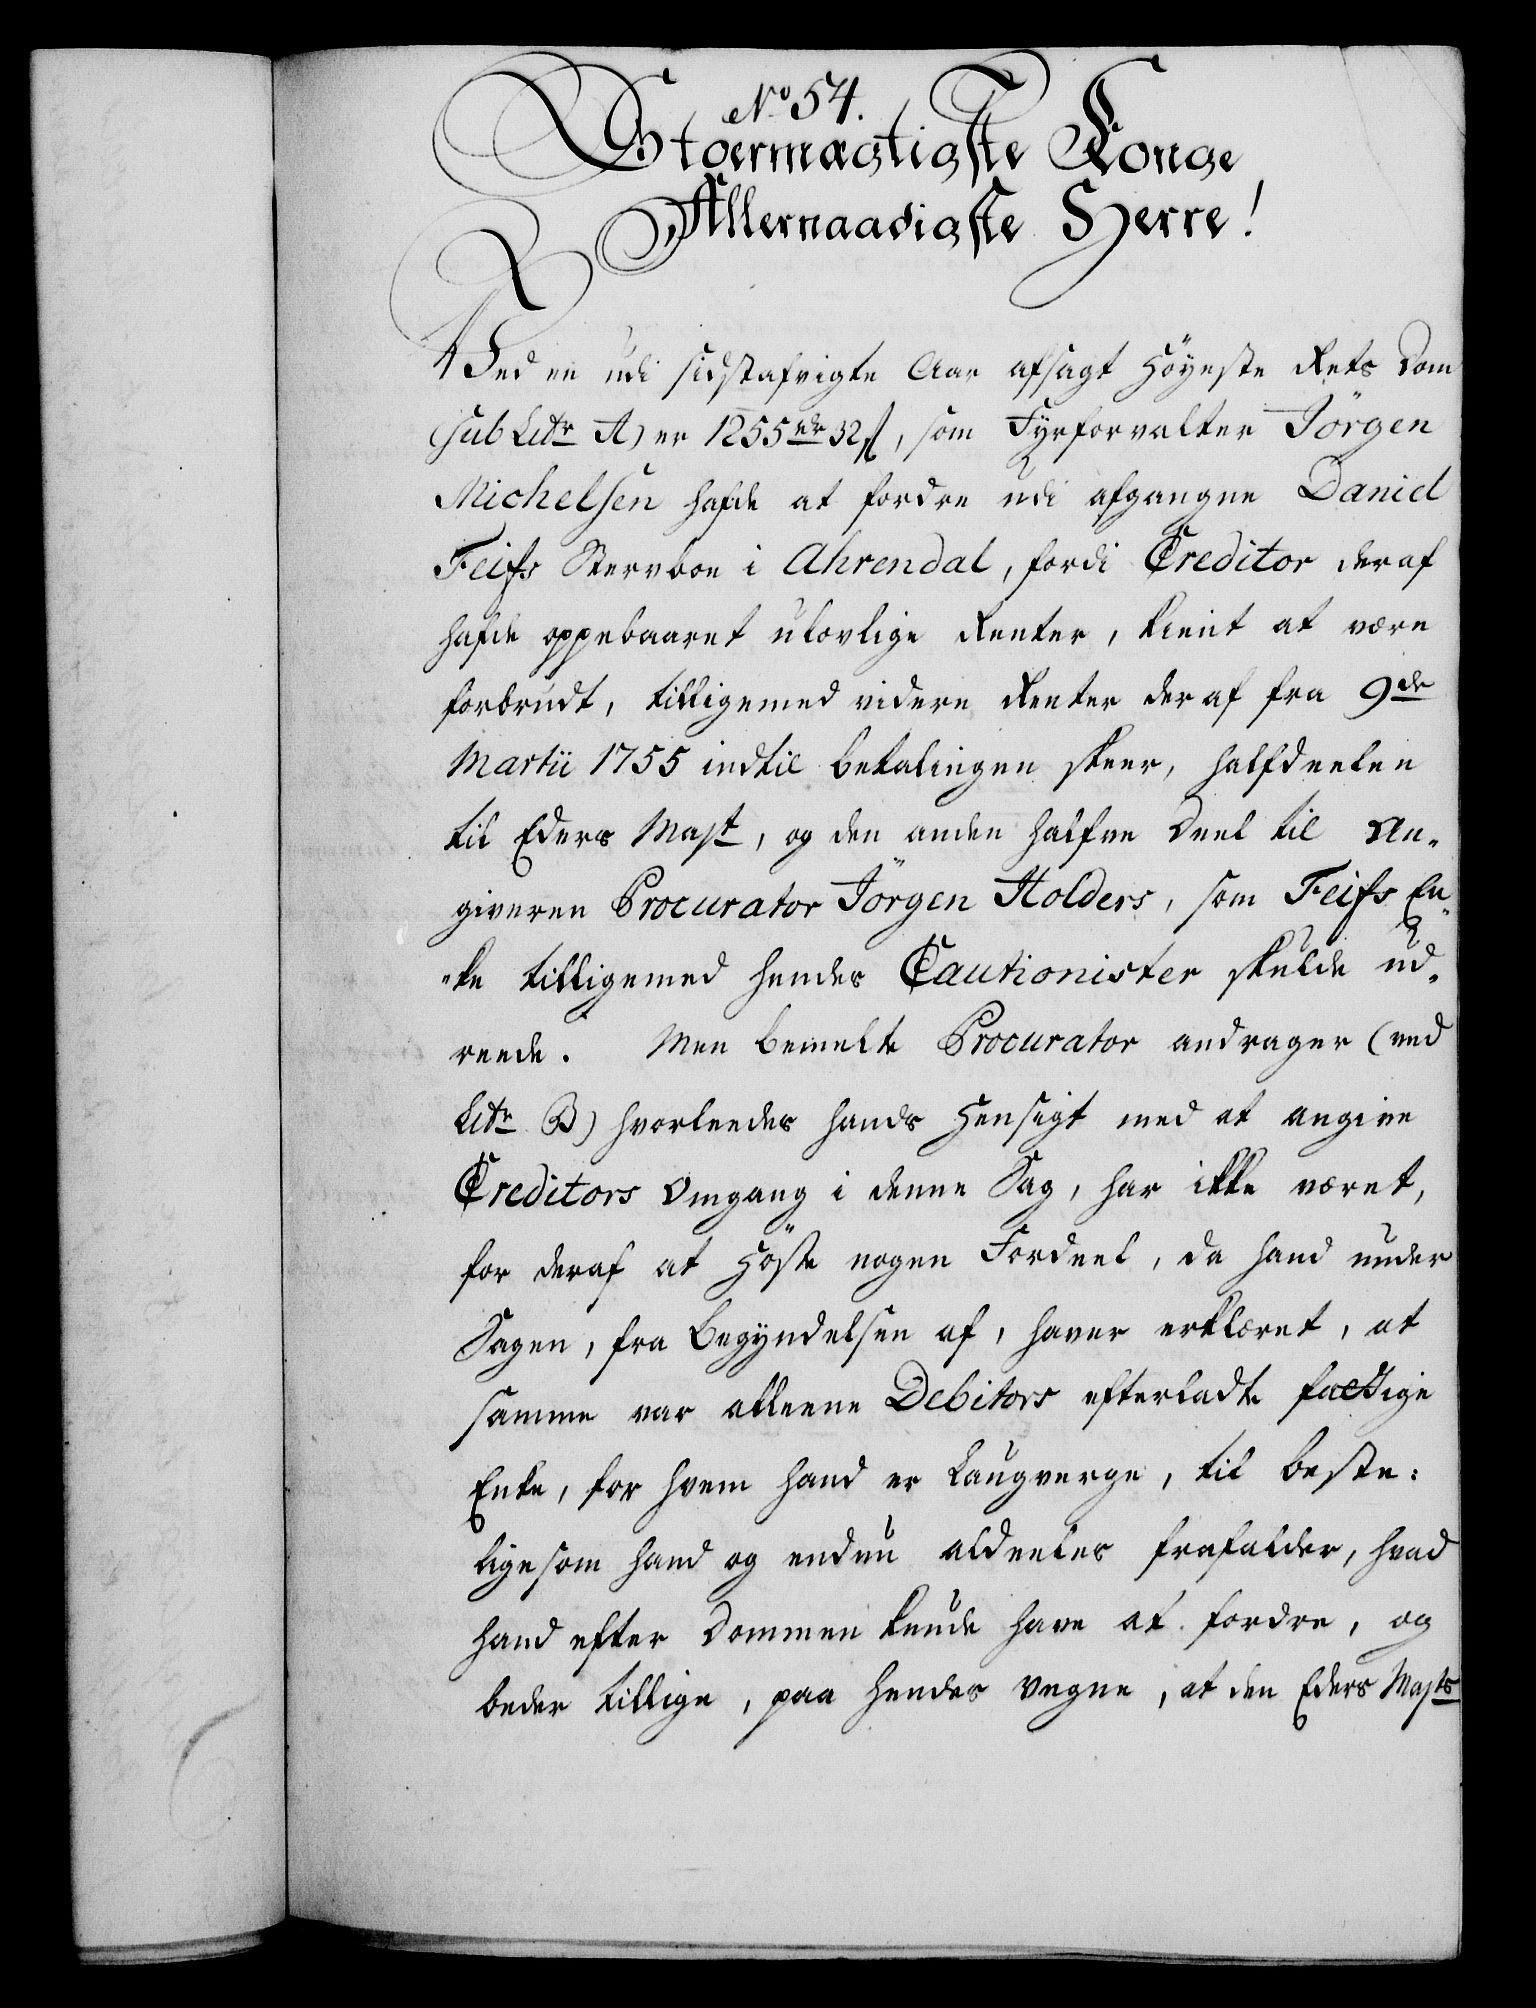 No 54.
Stoermægtigste Konge
Allernaadigste Herre!
Ved en udi sidstafvigte Aar afsagt Höyeste Rets Dom
(sub Litr A) er 1255 rdr 32 ß, som Fyrforvalter Jörgen
Michelsen hafde at fordre udi afgangne Daniel
Feifs Stervboe i Ahrendal, fordi Creditor deraf
hafde oppebaaret ulovlige Renter, kient at være
forbrudt, tilligemed videre Renter deraf fra 9de
Martii 1755 indtil betalingen skeer, halfdeelen
til Eders Mayt, og den anden halfve Deel til An-
giveren Procurator Jörgen Holders, som Feifs En-
-ke tilligemed hendes Cautionister skulde ud-
reede. Men bemelte Procurator andrager (ved
Litr B) hvorleedes hands Hensigt med at angive
Creditors Omgang i denne Sag, har ikke været,
for deraf at Höste nogen Fordeel, da hand under
Sagen, fra Begyndelsen af, haver erklæret, at
samme var alleene Debitors efterladte fattige
Enke, for hvem hand er Laugverge, til beste:
ligesom hand og endnu aldeeles frafalder, hvad
hand efter Dommen kunde have at fordre, og
beder tillige, paa hendes vegne, at den Eders Mayts